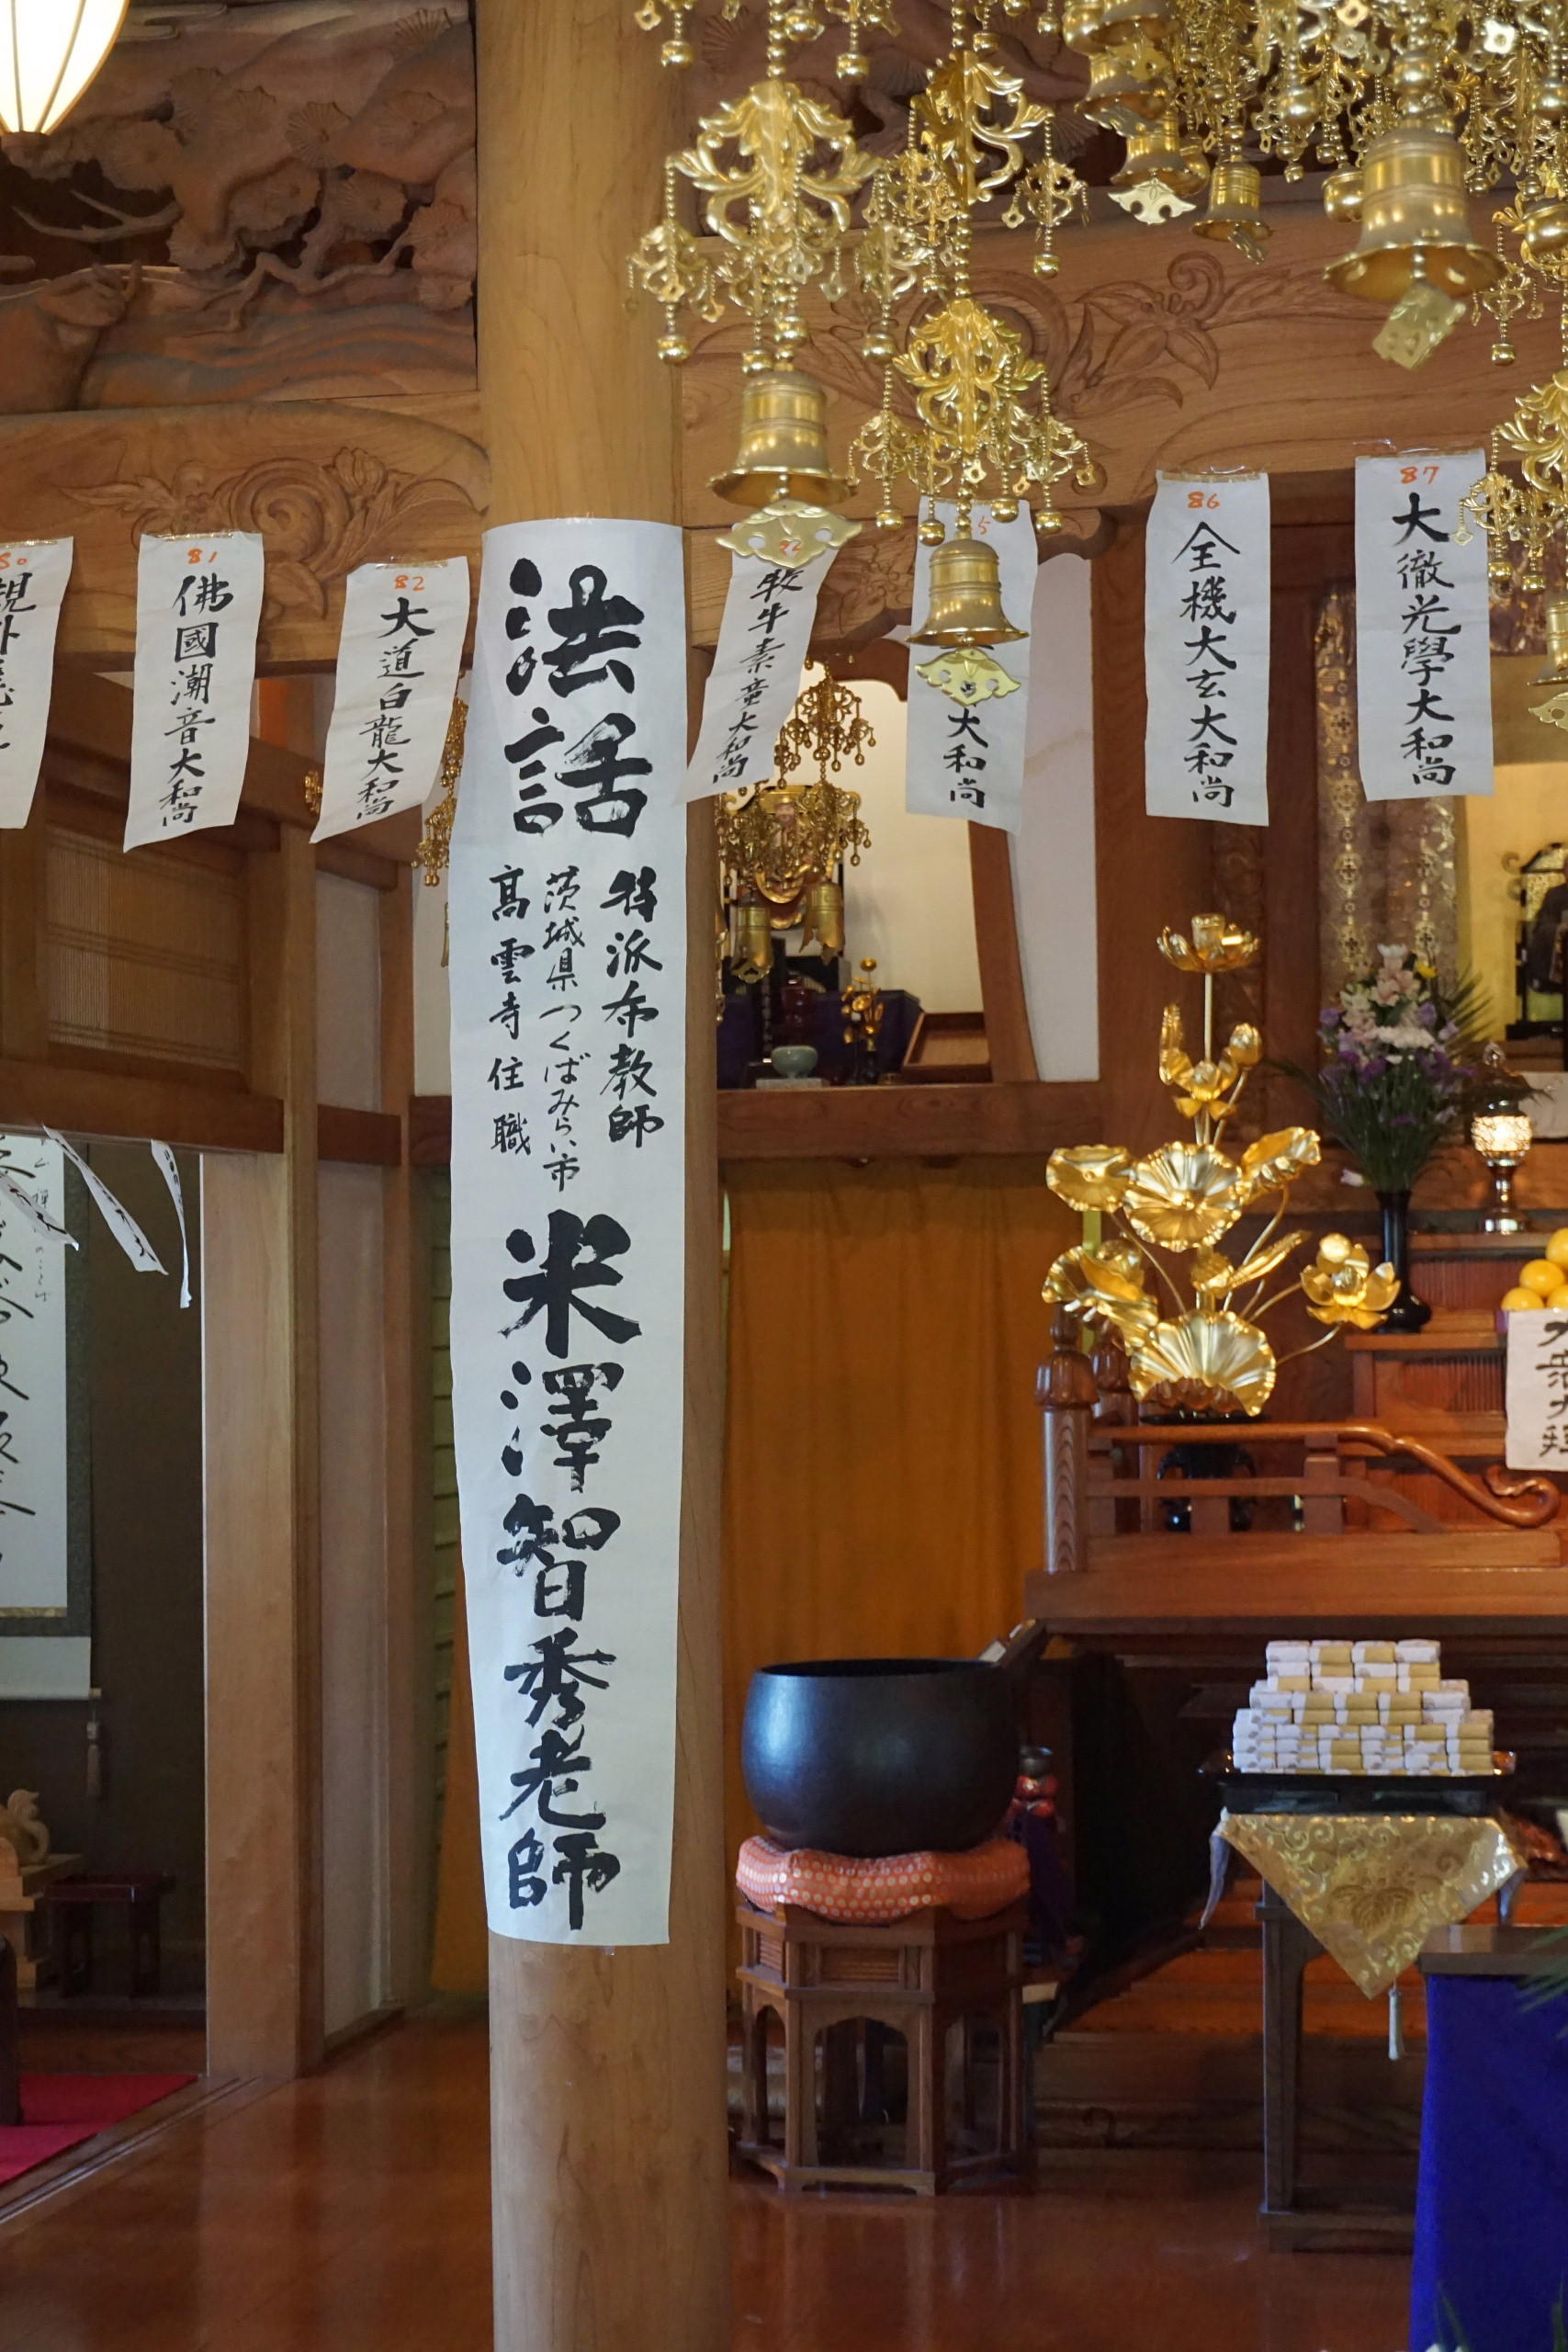 法話
特派布教師
茨城県つくばみらい市
高雲寺住職
米澤智秀老師
87
大徹光學大和尚
86
全機大玄大和尚
5
大和尚
牧牛素童大和尚
82
大道白龍大和尚
81
佛國潮音大和尚
80